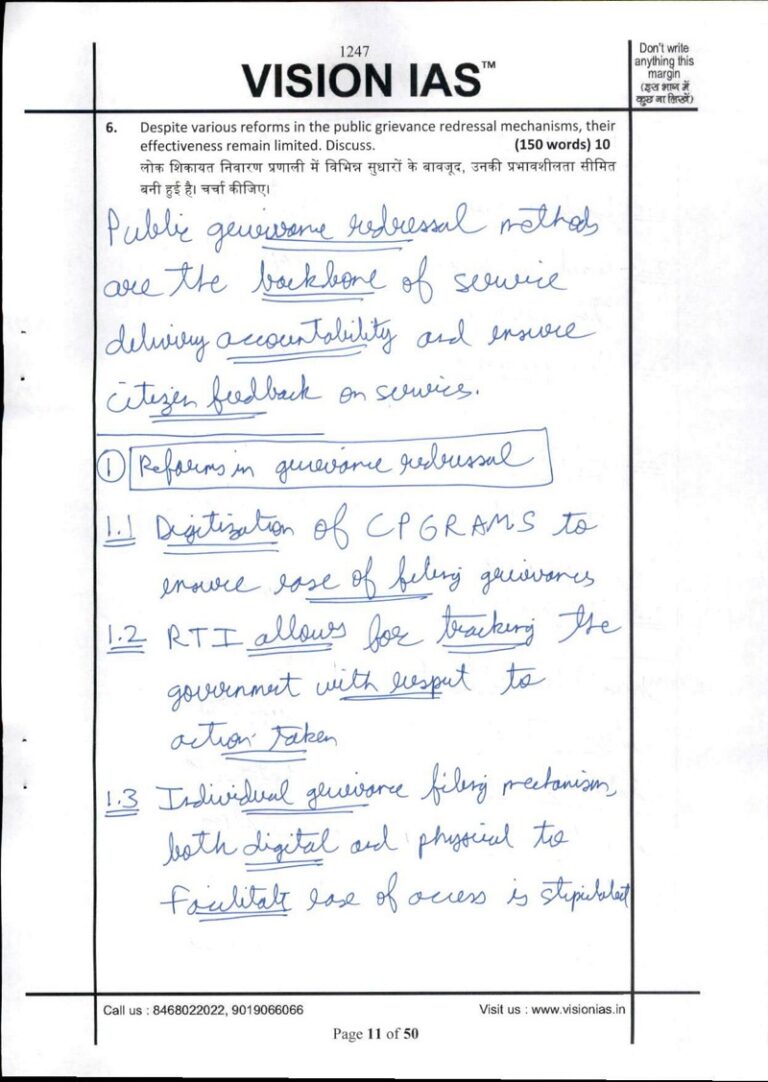 1247
VISION IAS™
Don't write
anything this
margin
(इस भाग में
कुछ ना लिखें)
6. Despite various reforms in the public grievance redressal mechanisms, their
effectiveness remain limited. Discuss. (150 words) 10
लोक शिकायत निवारण प्रणाली में विभिन्न सुधारों के बावजूद, उनकी प्रभावशीलता सीमित
बनी हुई है। चर्चा कीजिए।
Public grievance redressal methods
are the backbone of service
delivery accountability and ensure
citizen feedback on service.
1 Reforms in grievance redressal
1.1 Digitization of CPGRAMS to
ensure ease of filing grievances
1.2 RTI allows for tracking the
government with respect to
action taken
1.3 Individual grievance filing mechanism,
both digital and physical to
facilitate ease of access is stipulated
Call us : 8468022022, 9019066066 Visit us : www.visionias.in
Page 11 of 50